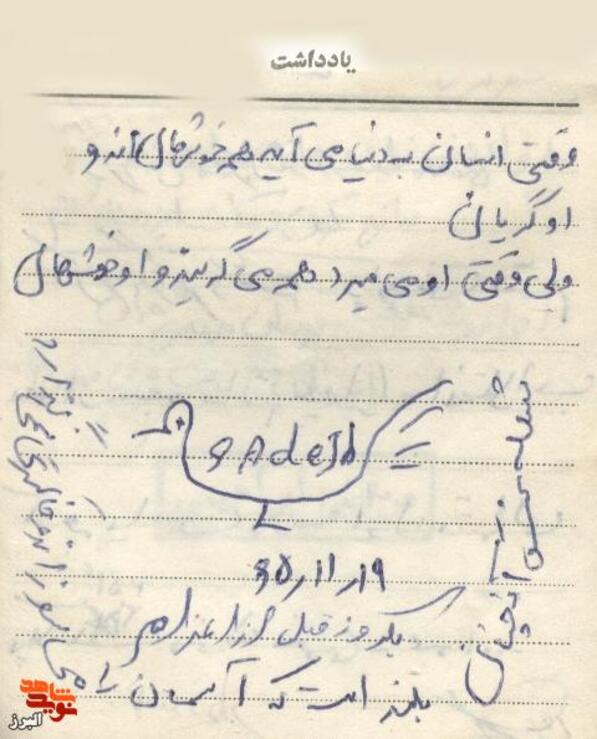 یادداشت
وقتی انسان به دنیا می آید همه خوشحال اند و
او گریان
ولی وقتی او می میرد همه می گریند و او خوشحال
یک روز قبل از اعزام
شعله
بلند است که آسمان را
می سوزاند و خاکستری
نوید شاهد
البرز